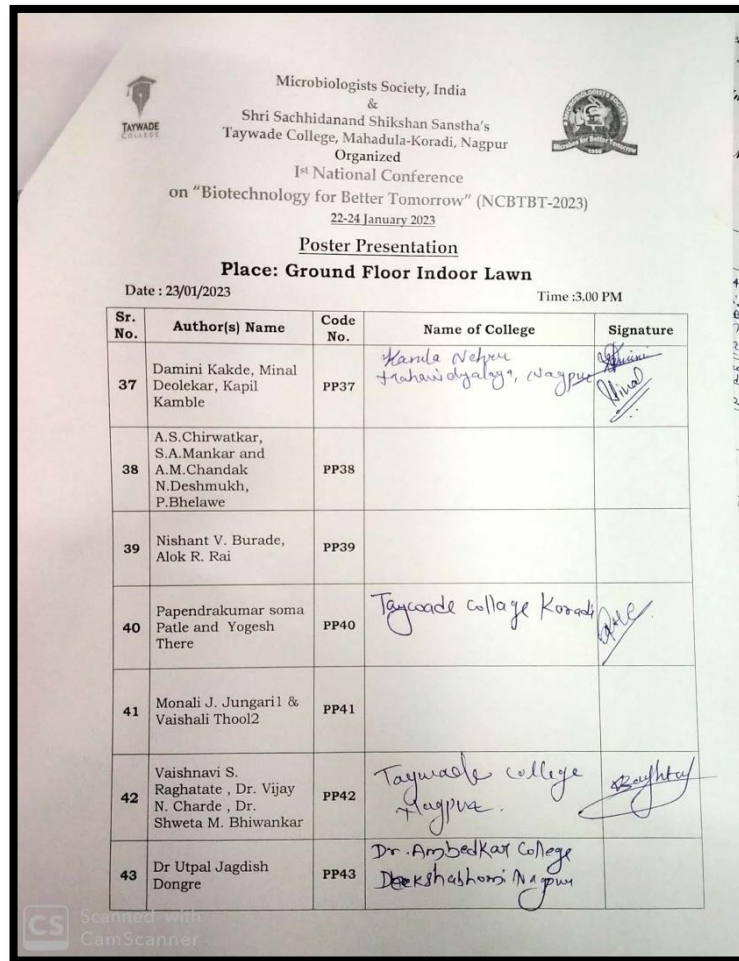 TAYWADE
COLLEGE
Microbiologists Society, India
&
Shri Sachhidanand Shikshan Sanstha's
Taywade College, Mahadula-Koradi, Nagpur
Organized
Ist National Conference
on "Biotechnology for Better Tomorrow" (NCBTBT-2023)
22-24 January 2023
Poster Presentation
Place: Ground Floor Indoor Lawn
Date : 23/01/2023 Time :3.00 PM
Sr. No. Author(s) Name Code No. Name of College Signature
37
Damini Kakde, Minal
Deolekar, Kapil
Kamble
PP37
Kamla Nehru
Mahavidyalaya, Nagpur
Minal
38
A.S.Chirwatkar,
S.A.Mankar and
A.M.Chandak
N.Deshmukh,
P.Bhelawe
PP38
39
Nishant V. Burade,
Alok R. Rai
PP39
40
Papendrakumar soma
Patle and Yogesh
There
PP40
Taywade collage Koradi
41
Monali J. Jungari1 &
Vaishali Thool2
PP41
42
Vaishnavi S.
Raghatate , Dr. Vijay
N. Charde , Dr.
Shweta M. Bhiwankar
PP42
Taywade college
Nagpur.
43
Dr Utpal Jagdish
Dongre
PP43
Dr. Ambedkar College
Deekshabhomi Nagpur
CS Scanned with
CamScanner